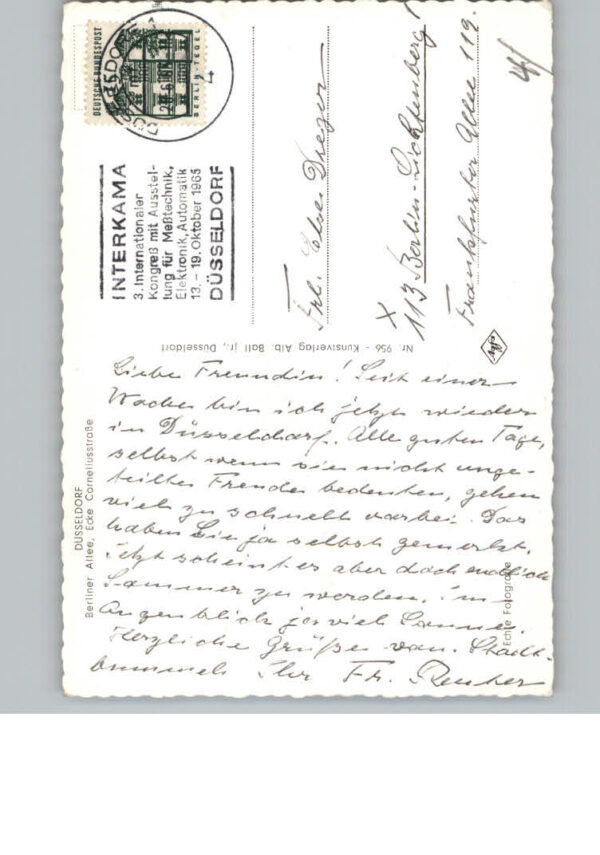 DEUTSCHE BUNDESPOST
BERLIN-TEGEL
DÜSSELDORF
INTERKAMA
3. Internationaler
Kongreß mit Ausstel-
lung für Meßtechnik,
Elektronik, Automatik
13. - 19. Oktober 1965
DÜSSELDORF
Frl.
X
113 Berlin-Lichtenberg 1
Frankfurter Allee 112.
Nr. 956 - Kunstverlag Alb. Ball jr., Düsseldorf
DÜSSELDORF
Berliner Allee, Ecke Corneliusstraße
Echte Fotografie
Liebe Freundin! Seit einer
Woche bin ich jetzt wieder
in Düsseldorf. Alle guten Tage,
selbst wenn sie nicht unge-
teilte Freude bedeuten, gehen
viel zu schnell vorbei. Das
haben Sie ja selbst gemerkt.
Jetzt scheint es aber doch endlich
Sommer zu werden. Im
Augenblick ja viel Sonne.
Herzliche Grüße von. Stadt-
bummel Ihr Fr. Reuter